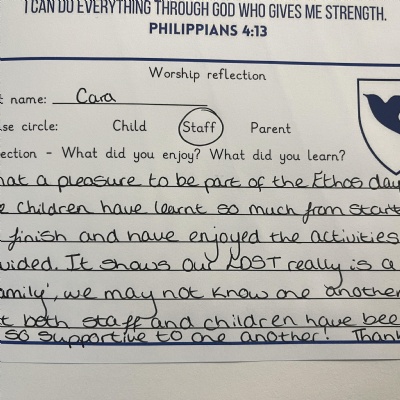 I CAN DO EVERYTHING THROUGH GOD WHO GIVES ME STRENGTH.
PHILIPPIANS 4:13
Worship reflection
name: Cara
circle: Child Staff Parent
ection - What did you enjoy? What did you learn?
hat a pleasure to be part of the Ethos day
e children have learnt so much from start
finish and have enjoyed the activities
vided. It shows our LDST really is a
amily', we may not know one another
t both staff and children have bee
so supportive to one another! Thank